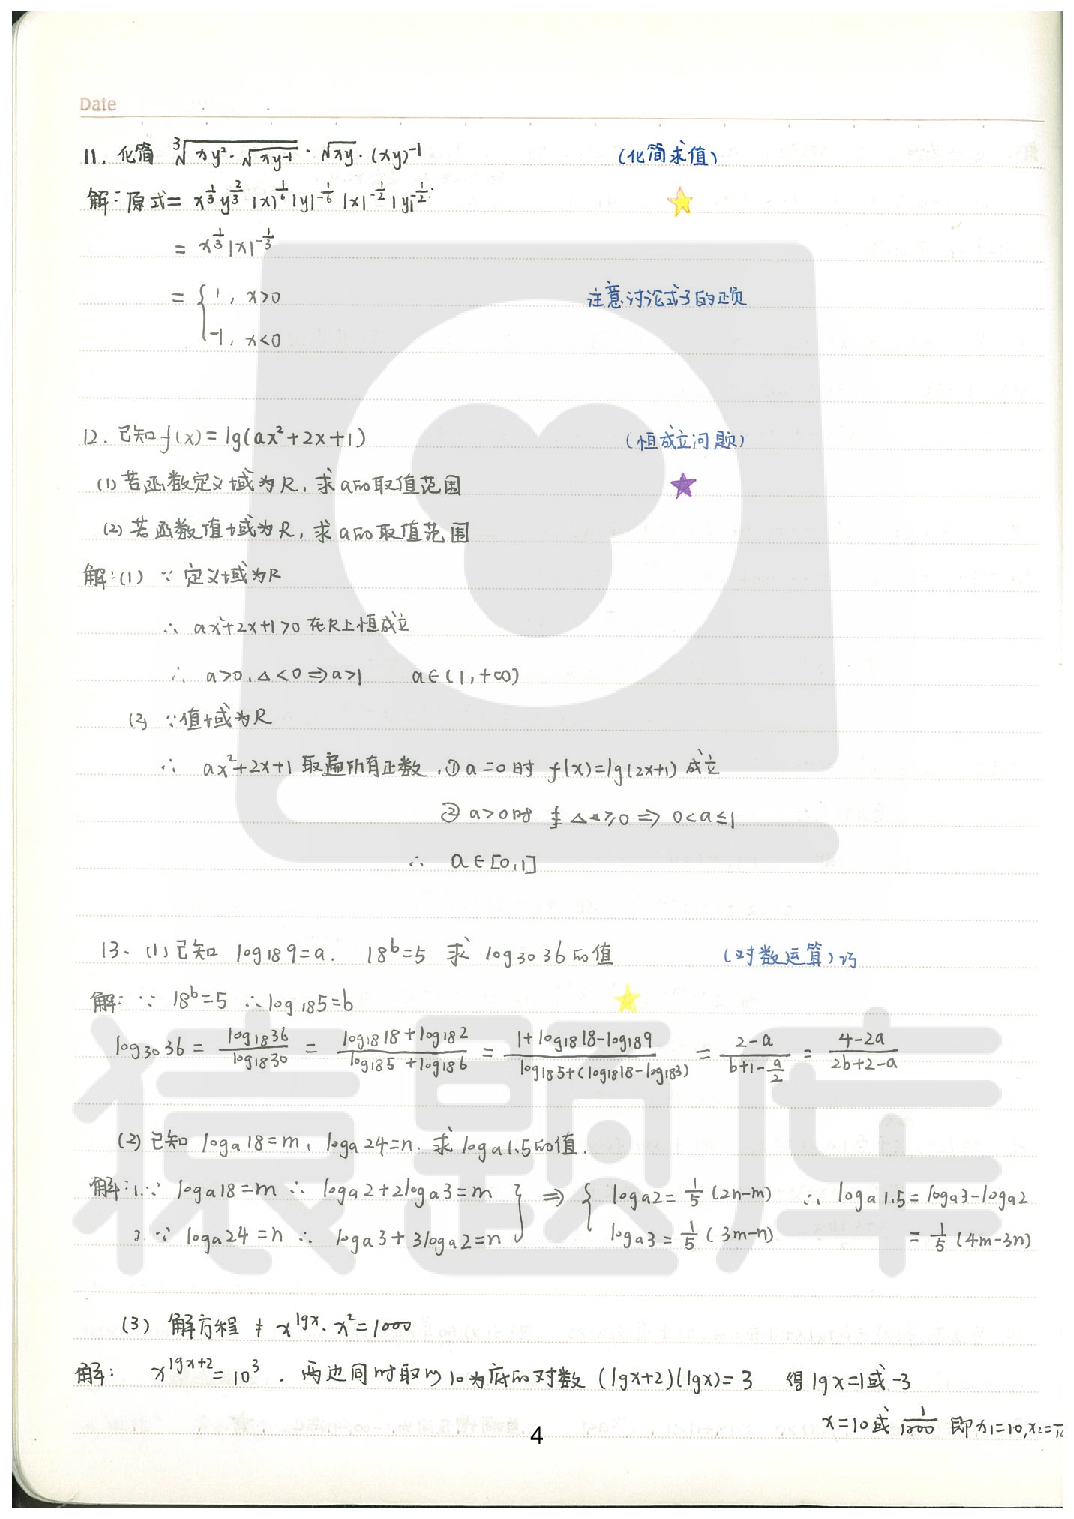 Date
11. 化简 ∛(xy²·√(xy⁻¹)) · √xy · (xy)⁻¹ (化简求值)
解: 原式= x^{1/3} y^{2/3} |x|^{1/6} |y|^{-1/6} |x|^{-1/2} |y|^{-1/2}
= x^{1/3} |x|^{-1/3}
= { 1, x>0 注意讨论式子的正负
-1, x<0
12. 已知 f(x)=lg(ax²+2x+1) (恒成立问题)
(1) 若函数定义域为R, 求a的取值范围
(2) 若函数值域为R, 求a的取值范围
解:(1) ∵ 定义域为R
∴ ax²+2x+1>0 在R上恒成立
∴ a>0, △<0 ⇒ a>1 a∈(1,+∞)
(2) ∵值域为R
∴ ax²+2x+1 取遍所有正数, ① a=0时 f(x)=lg(2x+1) 成立
② a>0时 △≥0 ⇒ 0<a≤1
∴ a∈[0,1]
13. (1) 已知 log₁₈9=a. 18^b=5 求 log₃₀36的值 (对数运算)巧
解: ∵ 18^b=5 ∴ log₁₈5=b
log₃₀36 = log₁₈36/log₁₈30 = (log₁₈18+log₁₈2)/(log₁₈5+log₁₈6) = (1+log₁₈18-log₁₈9)/(log₁₈5+(log₁₈18-log₁₈3)) = (2-a)/(b+1-a/2) = (4-2a)/(2b+2-a)
(2) 已知 logₐ18=m, logₐ24=n. 求 logₐ1.5的值.
解:1.∵ logₐ18=m ∴ logₐ2+2logₐ3=m } ⇒ { logₐ2=1/5(2n-m) ∴ logₐ1.5=logₐ3-logₐ2
2.∵ logₐ24=n ∴ logₐ3+3logₐ2=n logₐ3=1/5(3m-n) =1/5(4m-3n)
(3) 解方程 x^{lgx}·x²=1000
解: x^{lgx+2}=10³. 两边同时取以10为底的对数 (lgx+2)(lgx)=3 得lgx=1或-3
x=10或1/1000 即x₁=10, x₂=
4
猿题库